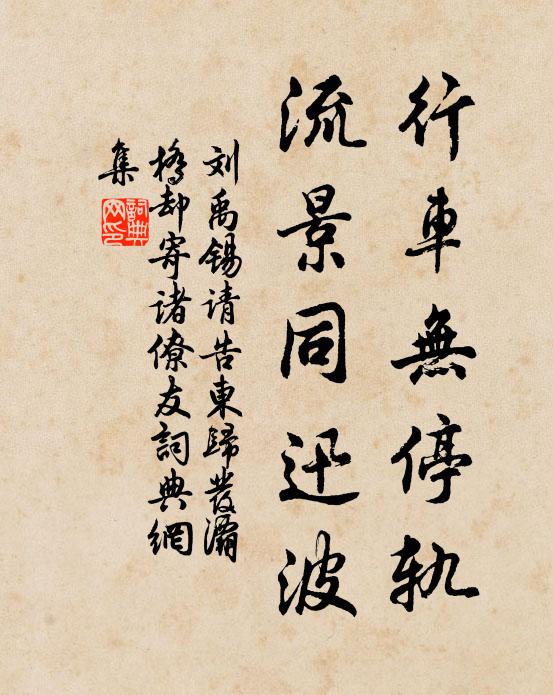 行車無停軌
流景同迅波
刘禹锡请告東歸發灞
橋却寄诸僚友詞典網
集
詞典
网印